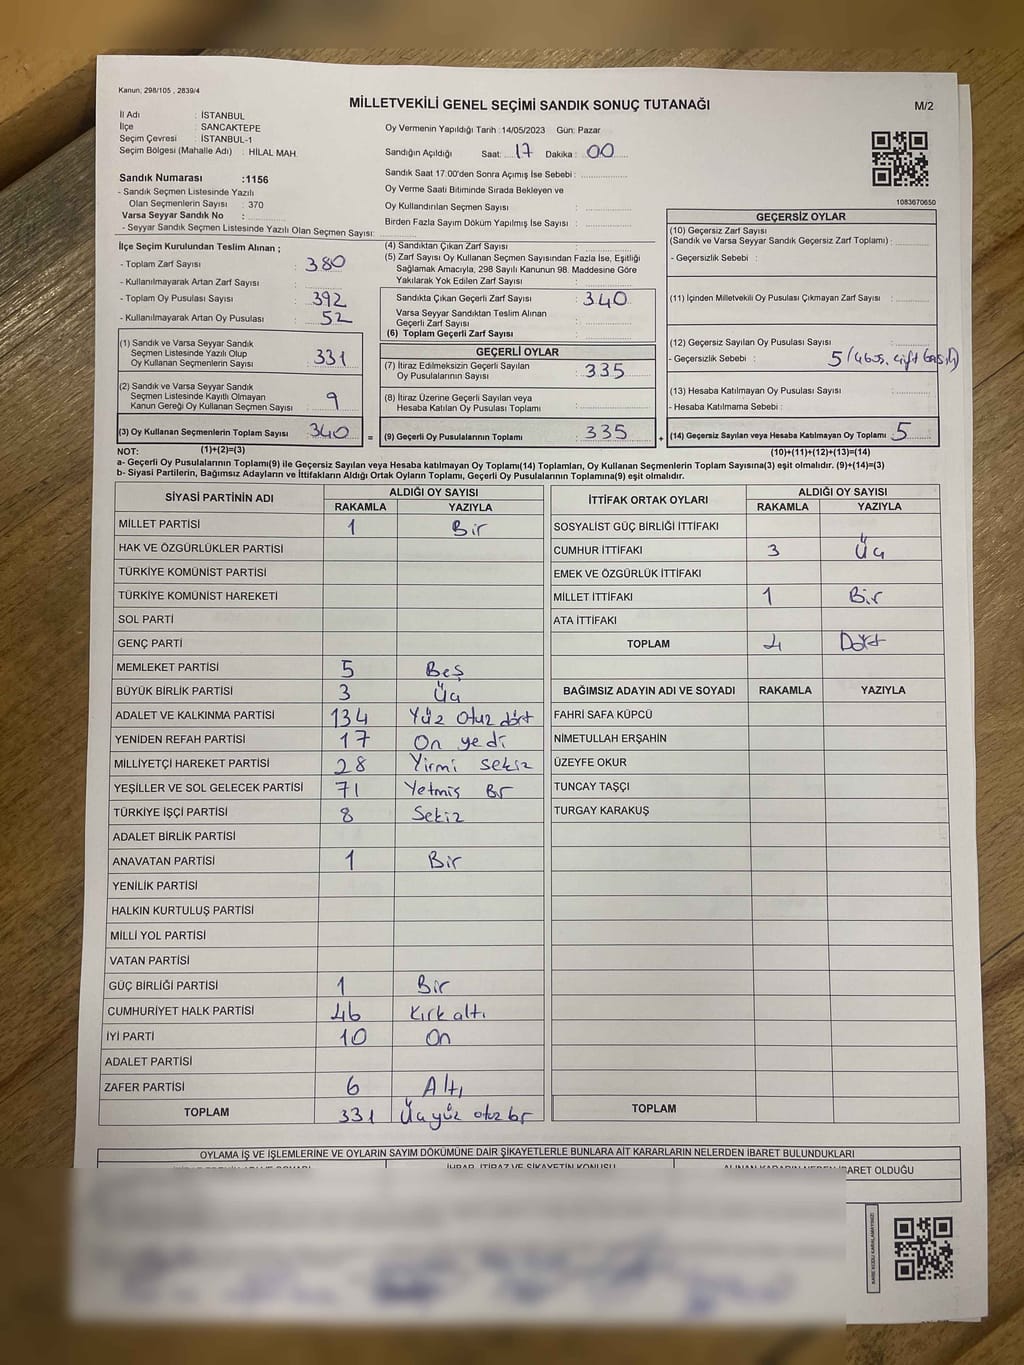 Kanun, 298/105 , 2839/4
MİLLETVEKİLİ GENEL SEÇİMİ SANDIK SONUÇ TUTANAĞI
M/2
İl Adı : İSTANBUL
İlçe : SANCAKTEPE
Seçim Çevresi : İSTANBUL-1
Seçim Bölgesi (Mahalle Adı) : HİLAL MAH.
Sandık Numarası :1156
- Sandık Seçmen Listesinde Yazılı
Olan Seçmenlerin Sayısı : 370
Varsa Seyyar Sandık No :
- Seyyar Sandık Seçmen Listesinde Yazılı Olan Seçmen Sayısı:
Oy Vermenin Yapıldığı Tarih :14/05/2023 Gün: Pazar
Sandığın Açıldığı Saat: 17 Dakika: 00
Sandık Saat 17:00'den Sonra Açımış İse Sebebi :
Oy Verme Saati Bitiminde Sırada Bekleyen ve
Oy Kullandırılan Seçmen Sayısı :
Birden Fazla Sayım Döküm Yapılmış İse Sayısı :
1083670650
İlçe Seçim Kurulundan Teslim Alınan ;
- Toplam Zarf Sayısı : 380
- Kullanılmayarak Artan Zarf Sayısı :
- Toplam Oy Pusulası Sayısı : 392
- Kullanılmayarak Artan Oy Pusulası : 52
(1) Sandık ve Varsa Seyyar Sandık
Seçmen Listesinde Yazılı Olup
Oy Kullanan Seçmenlerin Sayısı : 331
(2) Sandık ve Varsa Seyyar Sandık
Seçmen Listesinde Kayıtlı Olmayan
Kanun Gereği Oy Kullanan Seçmen Sayısı : 9
(3) Oy Kullanan Seçmenlerin Toplam Sayısı : 340 =
(4) Sandıktan Çıkan Zarf Sayısı :
(5) Zarf Sayısı Oy Kullanan Seçmen Sayısından Fazla İse, Eşitliği
Sağlamak Amacıyla, 298 Sayılı Kanunun 98. Maddesine Göre
Yakılarak Yok Edilen Zarf Sayısı :
Sandıkta Çıkan Geçerli Zarf Sayısı : 340
Varsa Seyyar Sandıktan Teslim Alınan
Geçerli Zarf Sayısı :
(6) Toplam Geçerli Zarf Sayısı :
GEÇERLİ OYLAR
(7) İtiraz Edilmeksizin Geçerli Sayılan
Oy Pusulalarının Sayısı : 335
(8) İtiraz Üzerine Geçerli Sayılan veya
Hesaba Katılan Oy Pusulası Toplamı :
(9) Geçerli Oy Pusulalarının Toplamı : 335 +
GEÇERSİZ OYLAR
(10) Geçersiz Zarf Sayısı
(Sandık ve Varsa Seyyar Sandık Geçersiz Zarf Toplamı) :
- Geçersizlik Sebebi :
(11) İçinden Milletvekili Oy Pusulası Çıkmayan Zarf Sayısı :
(12) Geçersiz Sayılan Oy Pusulası Sayısı :
- Geçersizlik Sebebi : 5
(13) Hesaba Katılmayan Oy Pusulası Sayısı :
- Hesaba Katılmama Sebebi :
(14) Geçersiz Sayılan veya Hesaba Katılmayan Oy Toplamı : 5
NOT: (1)+(2)=(3) (10)+(11)+(12)+(13)=(14)
a- Geçerli Oy Pusulalarının Toplamı(9) ile Geçersiz Sayılan veya Hesaba katılmayan Oy Toplamı(14) Toplamları, Oy Kullanan Seçmenlerin Toplam Sayısına(3) eşit olmalıdır. (9)+(14)=(3)
b- Siyasi Partilerin, Bağımsız Adayların ve İttifakların Aldığı Ortak Oyların Toplamı, Geçerli Oy Pusulalarının Toplamına(9) eşit olmalıdır.
SİYASİ PARTİNİN ADI ALDIĞI OY SAYISI
RAKAMLA YAZIYLA
MİLLET PARTİSİ 1 Bir
HAK VE ÖZGÜRLÜKLER PARTİSİ
TÜRKİYE KOMÜNİST PARTİSİ
TÜRKİYE KOMÜNİST HAREKETİ
SOL PARTİ
GENÇ PARTİ
MEMLEKET PARTİSİ 5 Beş
BÜYÜK BİRLİK PARTİSİ 3 Üç
ADALET VE KALKINMA PARTİSİ 134 Yüz Otuz dört
YENİDEN REFAH PARTİSİ 17 On yedi
MİLLİYETÇİ HAREKET PARTİSİ 28 Yirmi sekiz
YEŞİLLER VE SOL GELECEK PARTİSİ 71 Yetmiş Bir
TÜRKİYE İŞÇİ PARTİSİ 8 Sekiz
ADALET BİRLİK PARTİSİ
ANAVATAN PARTİSİ 1 Bir
YENİLİK PARTİSİ
HALKIN KURTULUŞ PARTİSİ
MİLLİ YOL PARTİSİ
VATAN PARTİSİ
GÜÇ BİRLİĞİ PARTİSİ 1 Bir
CUMHURİYET HALK PARTİSİ 46 Kırk altı
İYİ PARTİ 10 On
ADALET PARTİSİ
ZAFER PARTİSİ 6 Altı
TOPLAM 331 Üçyüz otuz bir
İTTİFAK ORTAK OYLARI ALDIĞI OY SAYISI
RAKAMLA YAZIYLA
SOSYALİST GÜÇ BİRLİĞİ İTTİFAKI
CUMHUR İTTİFAKI 3 Üç
EMEK VE ÖZGÜRLÜK İTTİFAKI
MİLLET İTTİFAKI 1 Bir
ATA İTTİFAKI
TOPLAM 4 Dört
BAĞIMSIZ ADAYIN ADI VE SOYADI RAKAMLA YAZIYLA
FAHRİ SAFA KÜPCÜ
NİMETULLAH ERŞAHİN
ÜZEYFE OKUR
TUNCAY TAŞÇI
TURGAY KARAKUŞ
TOPLAM
OYLAMA İŞ VE İŞLEMLERİNE VE OYLARIN SAYIM DÖKÜMÜNE DAİR ŞİKAYETLERLE BUNLARA AİT KARARLARIN NELERDEN İBARET BULUNDUKLARI
İHBAR, İTİRAZ VE ŞİKAYETİN KONUSU
ALINAN KARARIN NEDEN İBARET OLDUĞU